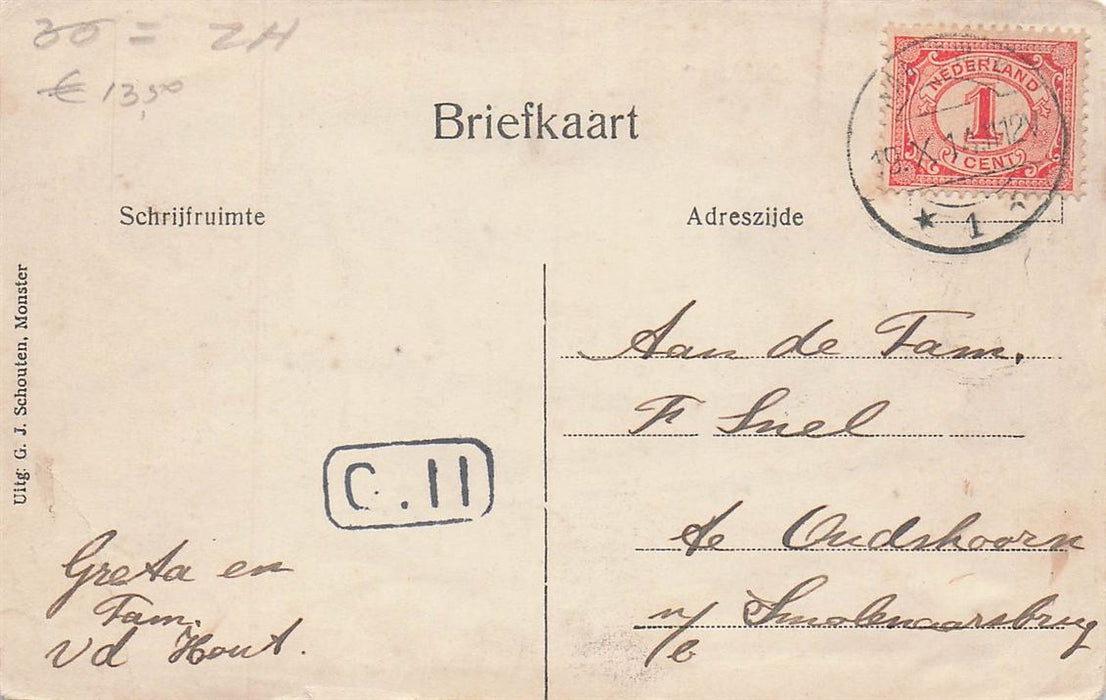 30 = ZH
€ 13,50
Briefkaart
NEDERLAND
1
CENT
1
Schrijfruimte
Adreszijde
Uitg: G. J. Schouten, Monster
C.11
Greta en
Fam.
vd Hout.
Aan de Fam.
F Snel
te Oudshoorn
n/b Smolenaarsbrug